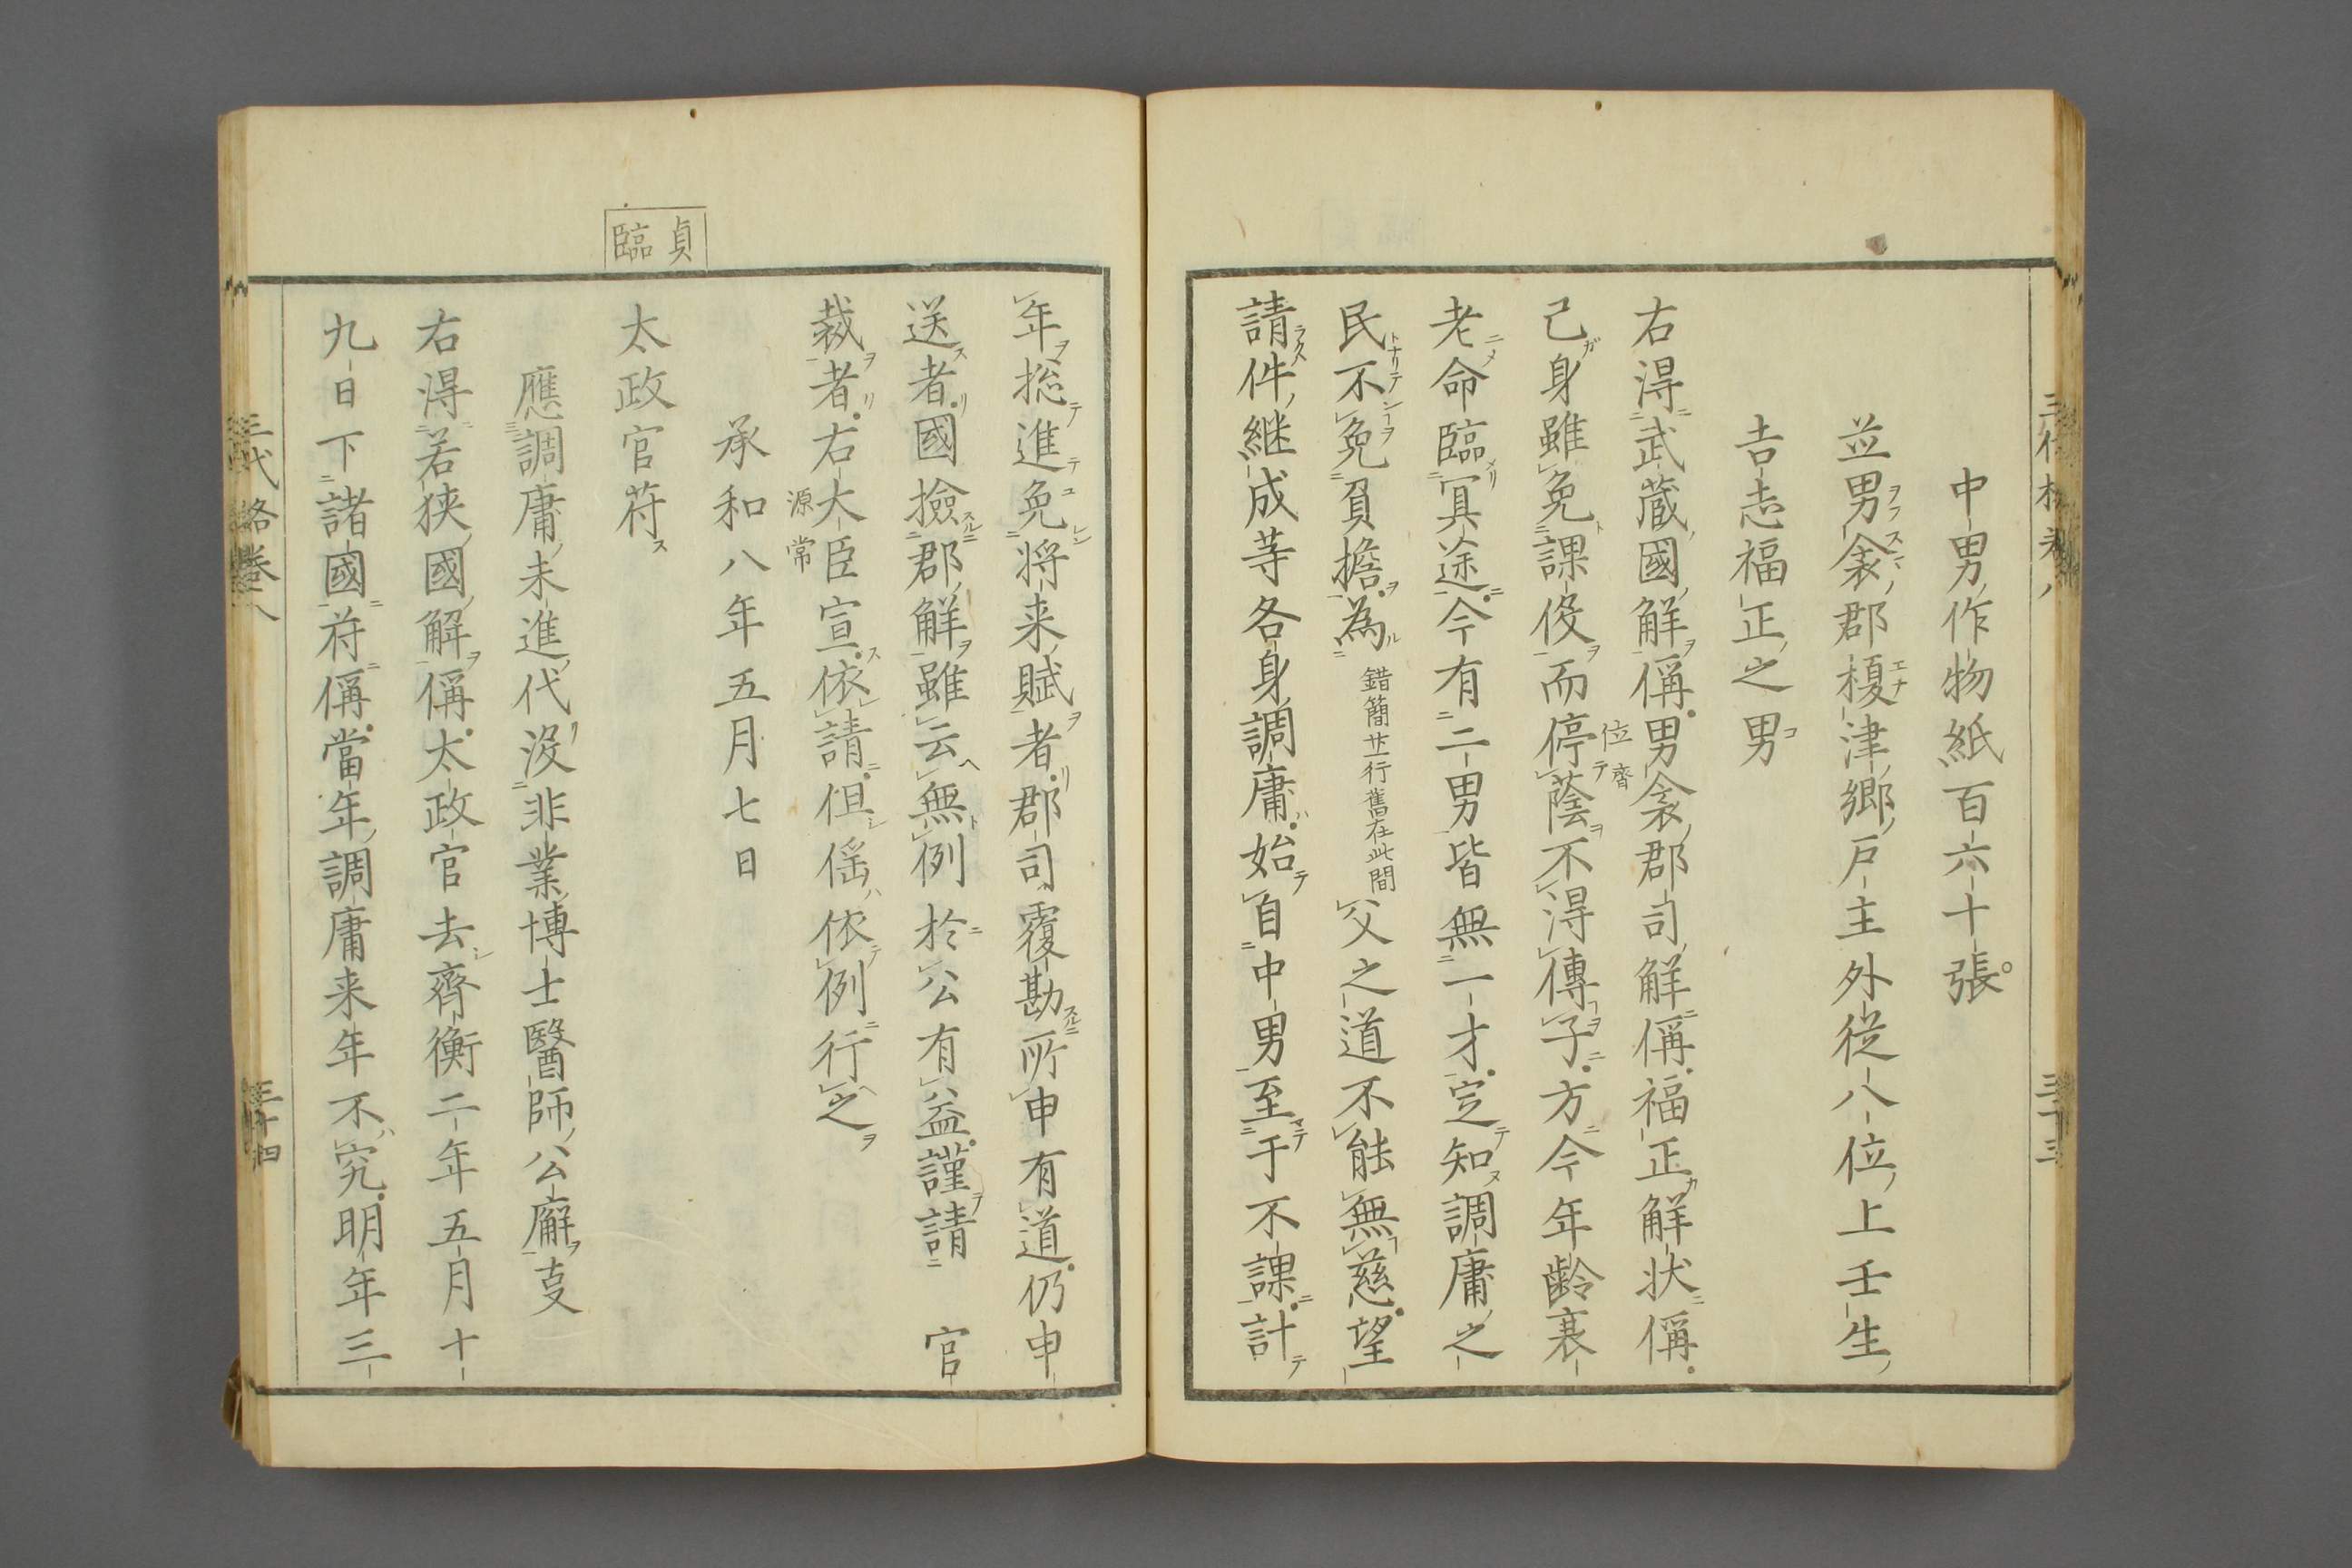 中男作物紙百六十張
並男衾郡榎津郷戸主外従八位上壬生
吉志福正之男
右得武蔵國解偁男衾郡司解偁福正解状偁
己身雖免課役而停蔭不得傳子方今年齢衰
位齊
老命臨冥途今有二男皆無一才定知調庸之
民不免負擔為錯簡廿一行舊在此間父之道不能無慈望
請件継成等各身調庸始自中男至于不課計
年捴進免将来賦者郡司覆勘所申有道仍申
送者國撿郡解雖云無例於公有益謹請 官
裁者右大臣宣依請但徭依例行之
源常
承和八年五月七日
貞臨
太政官符
應調庸未進代没非業博士醫師公廨支
右得若狭國解偁太政官去齊衡二年五月十
九日下諸國符偁當年調庸来年不究明年三
三代格巻八
三十四